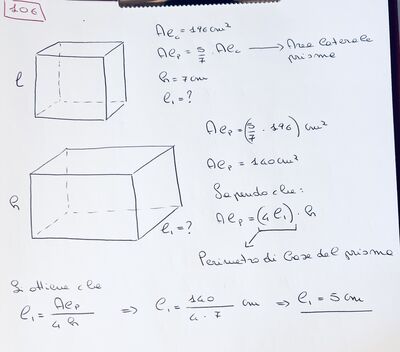 106
Al_c = 196 cm²
Al_p = 5/7 · Al_c → Area laterale prisma
h = 7 cm
l₁ = ?
l
Al_p = (5/7 · 196) cm²
Al_p = 140 cm²
h
l₁ = ?
Sapendo che:
Al_p = (4 l₁) · h
Perimetro di base del prisma
Si ottiene che
l₁ = Al_p / 4h ⇒ l₁ = 140 / 4 · 7 cm ⇒ l₁ = 5 cm